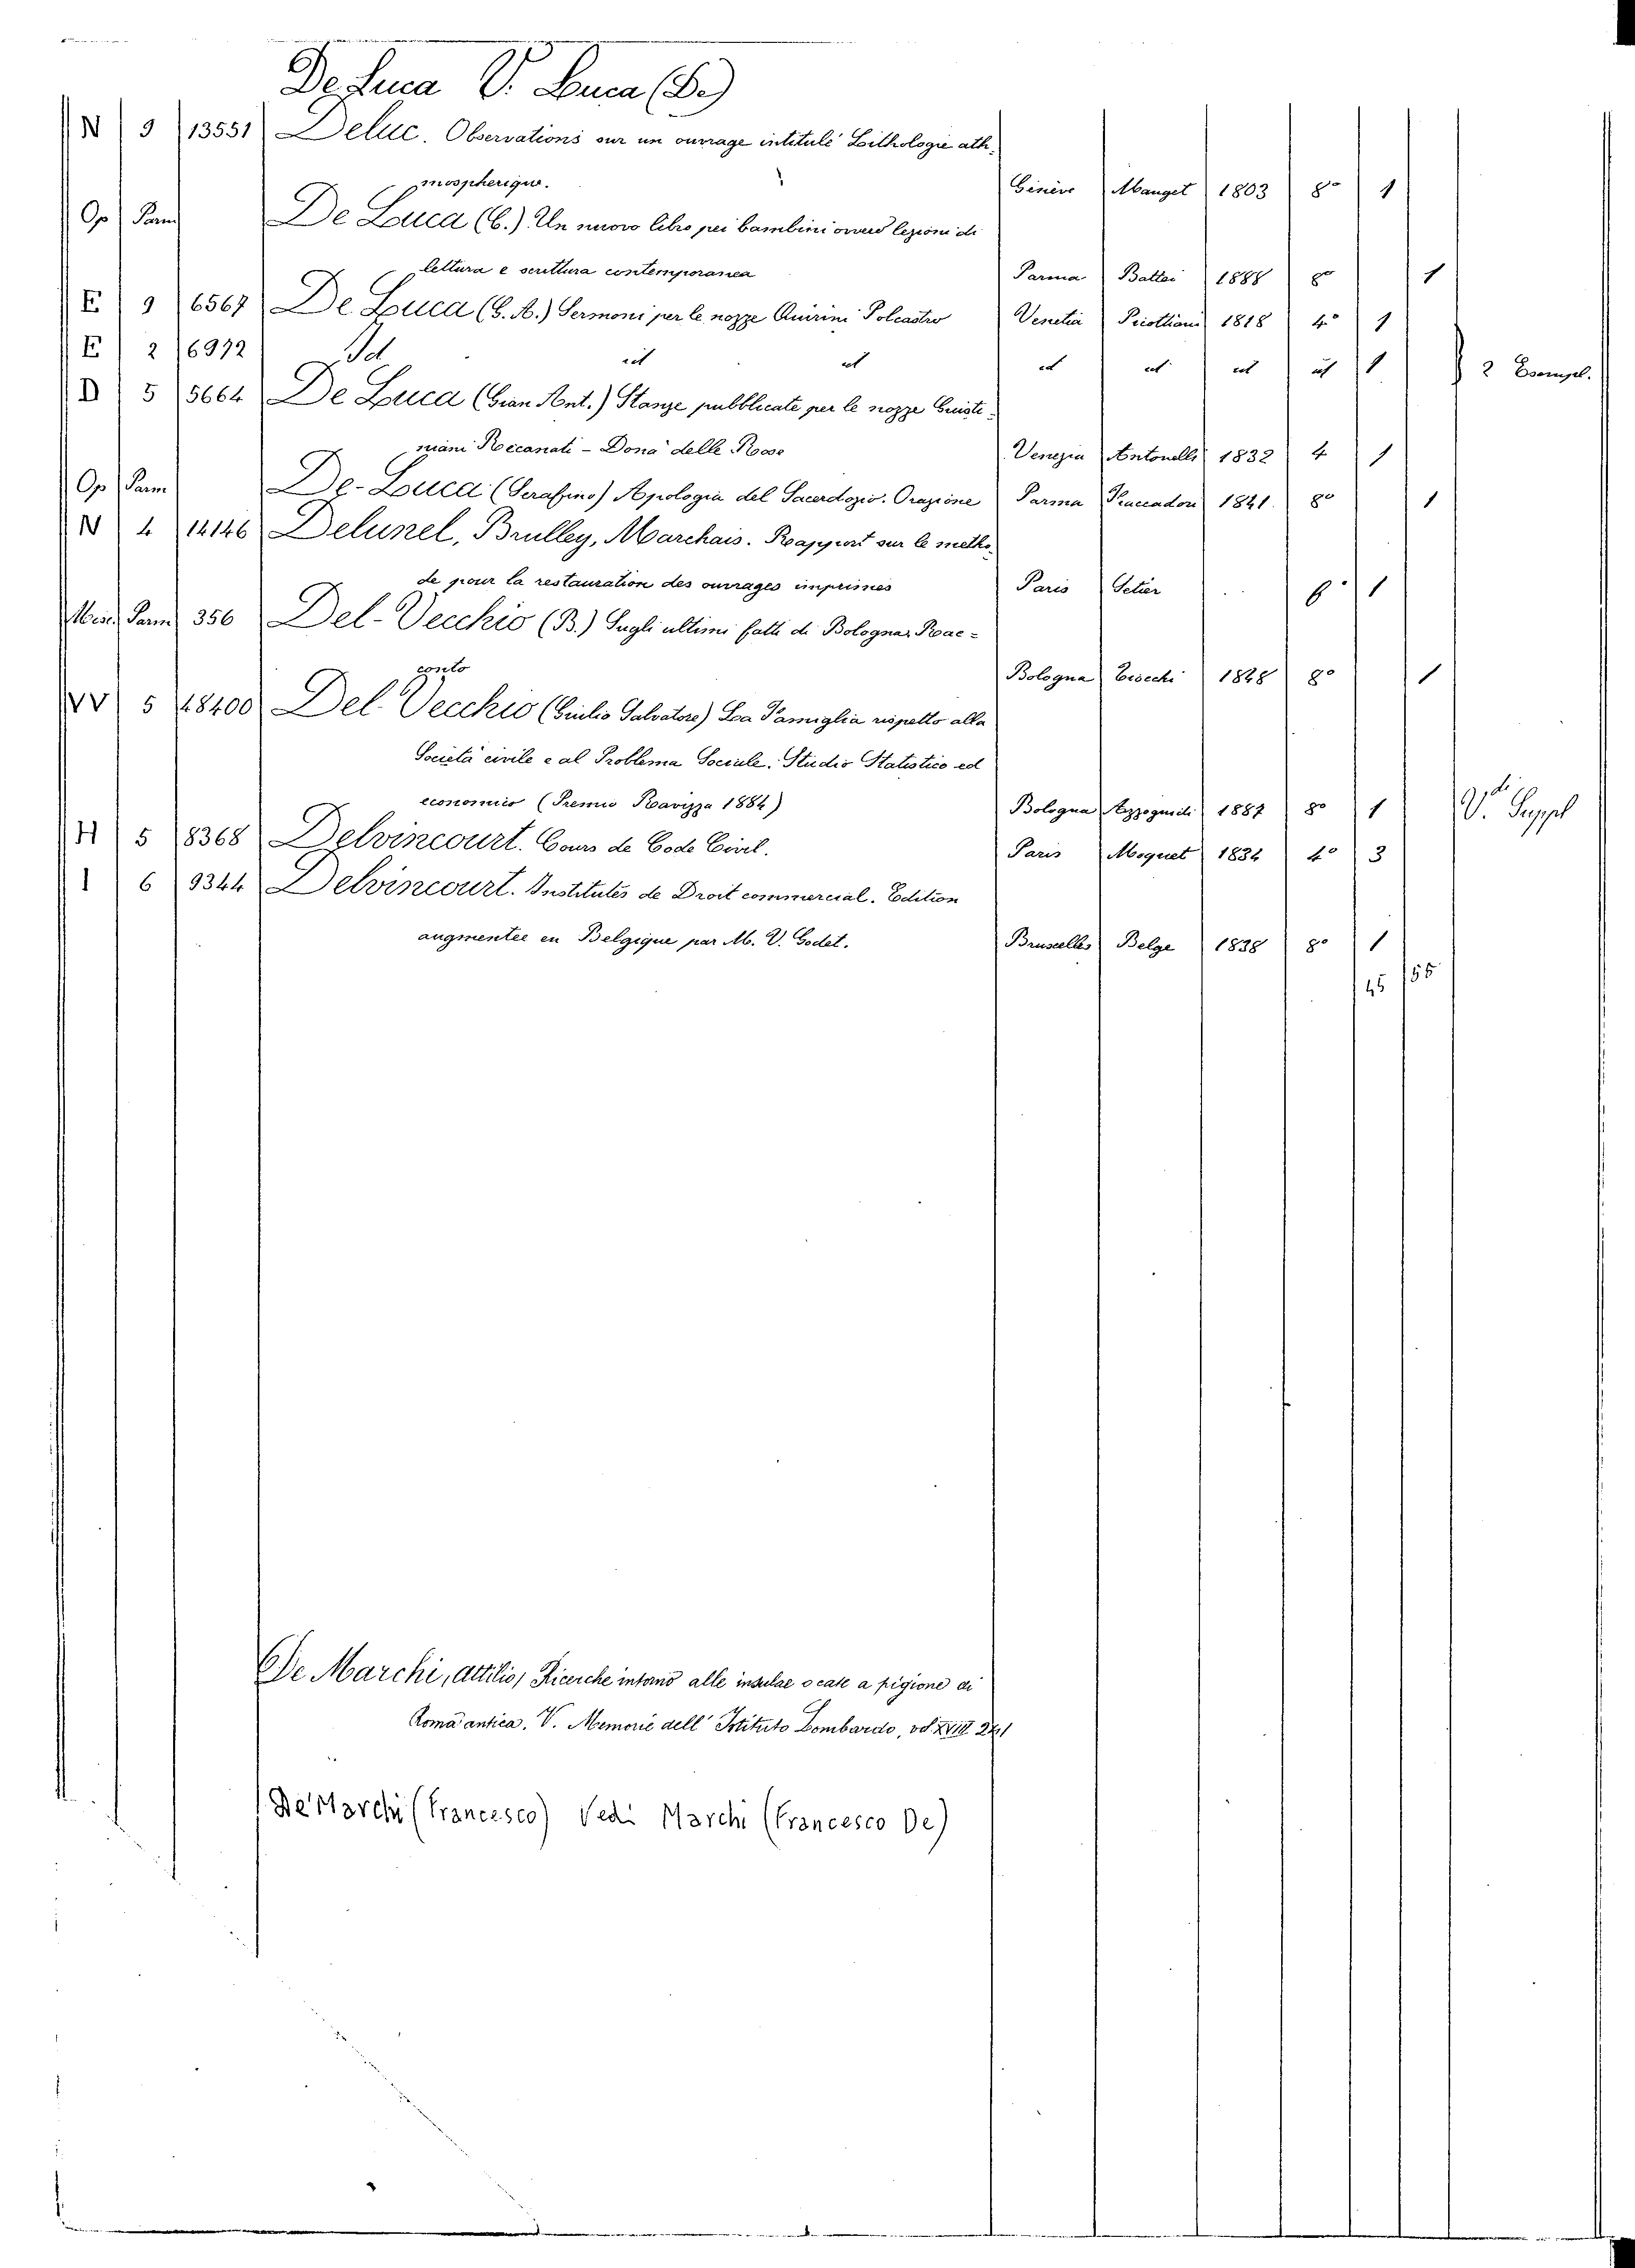 De Luca V. Luca (De)
N 9 13551 Deluc. Observations sur un ouvrage intitulé Lithologie ath-
mospherique. Génève Manget 1803 8° 1
Op Parm De Luca (C.) Un nuovo libro pei bambini ovvero lezioni di
lettura e scrittura contemporanea Parma Battei 1888 8° 1
E 9 6567 De Luca (G. A.) Sermoni per le nozze Quirini Polcastro Venetia Picottiani 1818 4° 1
E 2 6972 Id id id id id id id 1 2 Esempl.
D 5 5664 De Luca (Gian Ant.) Stanze pubblicate per le nozze Giusti-
niani Reccanati - Donà delle Rose Venezia Antonelli 1832 4 1
Op Parm De-Luca (Serafino) Apologia del Sacerdozio. Orazione Parma 1841. 8° 1
N 4 14146 Delunel, Brulley, Marchais. Rapport sur le metho-
de pour la restauration des ouvrages imprimés Paris 8° 1
Misc. Parm 356 Del-Vecchio (B.) Sugli ultimi fatti di Bologna, Rac-
conto Bologna 1848 8° 1
VV 5 28400 Del Vecchio (Giulio Salvatore) La Famiglia rispetto alla
Società civile e al Problema Sociale. Studio Statistico ed
economico (Premio Ravizza 1884) Bologna Azzoguidi 1887 8° 1 Vdi Suppl
H 5 8368 Delvincourt. Cours de Code Civil. Paris Moquet 1834 4° 3
I 6 9344 Delvincourt. Institutes de Droit commercial. Edition
augmentée en Belgique par M. V. Godet. Bruxelles Belge 1838 8° 1
45 55
De Marchi, Attilio, Ricerche intorno alle insulae o case a pigione di
Roma antica. V. Memorie dell' Istituto Lombardo, vol. XVIII 241
De Marchi (Francesco) Vedi Marchi (Francesco De)